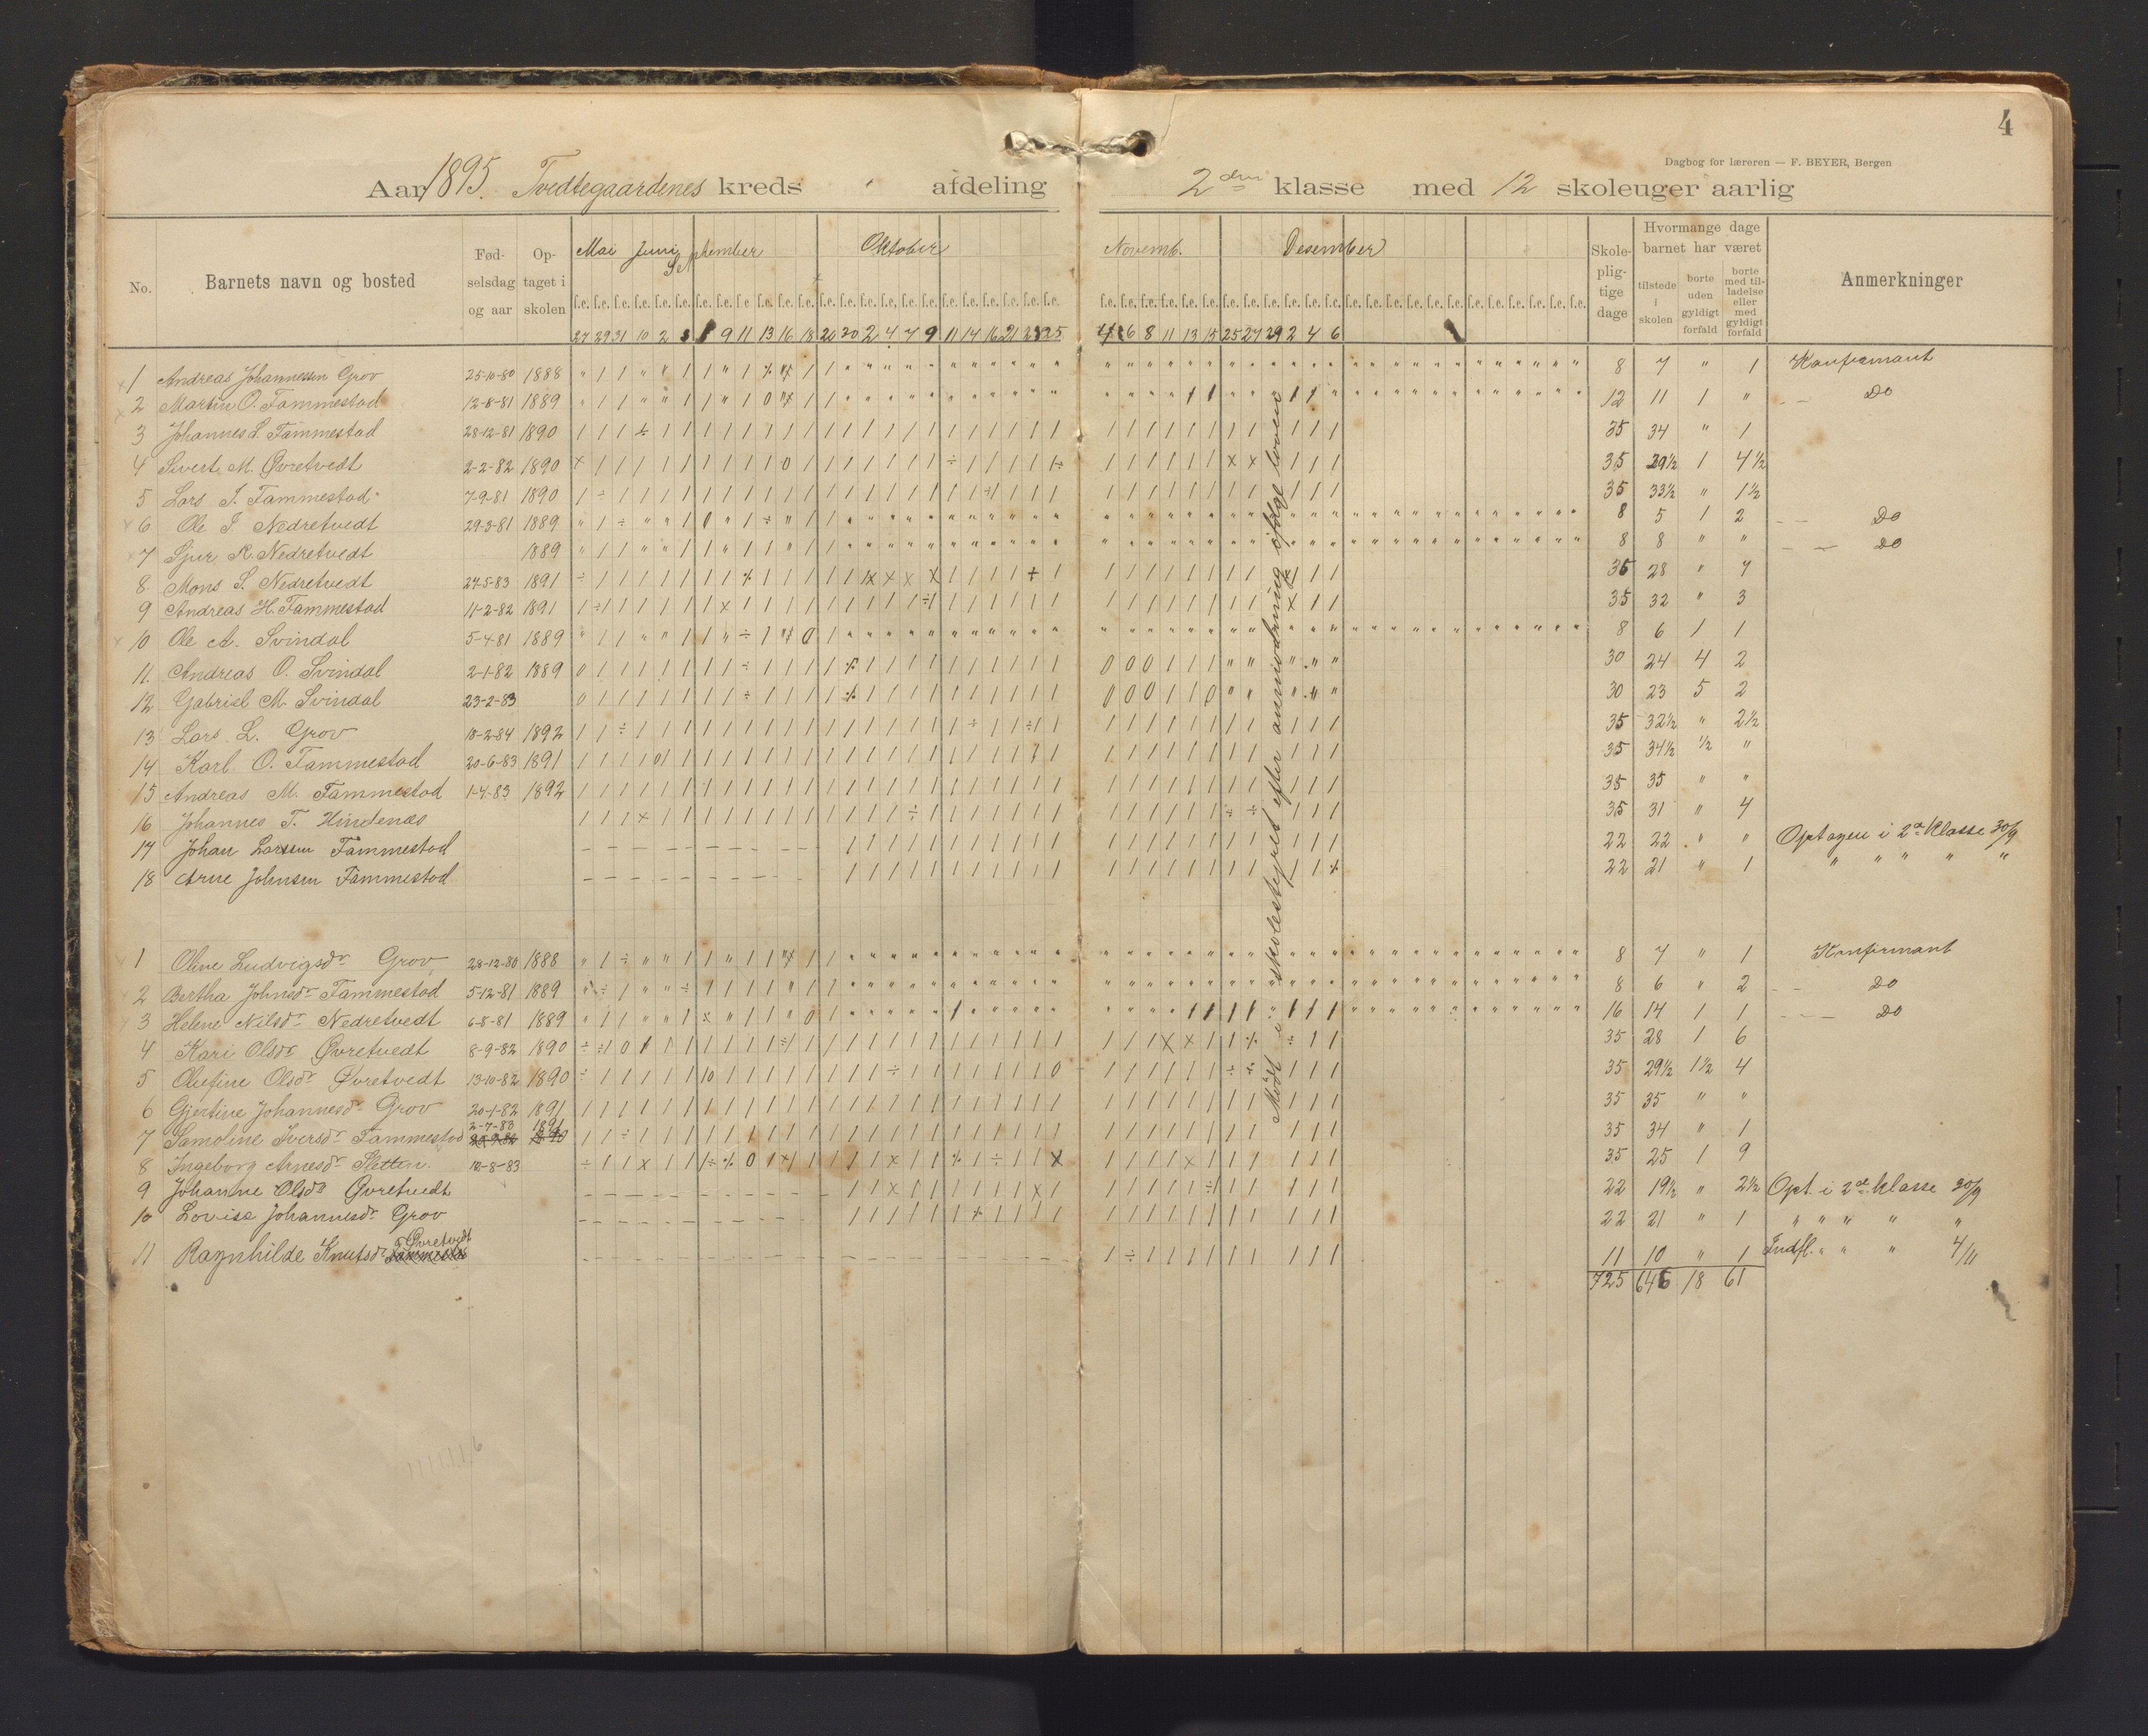 4
Dagbog for læreren — F. BEYER, Bergen
Aar 1895. Tvedtegaardenes kreds " afdeling 2den klasse med 12 skoleuger aarlig
No. Barnets navn og bosted Fødselsdag og aar Optaget i skolen Mai Juni September Oktober Novemb. Desember Skolepligtige dage Hvormange dage barnet har været tilstede i skolen borte uden gyldigt forfald borte med tilladelse eller med gyldigt forfald Anmerkninger
27 29 31 10 2 9 11 13 16 18 20 30 2 4 7 9 11 14 16 21 23 25 4 6 8 11 13 15 25 27 29 2 4 6
1 Andreas Johannessen Grov 25-10-80 1888 8 7 " 1 Konfirmant
2 Martin O. Tammestad 12-8-81 1889 12 11 1 " Do
3 Johannes L. Tammestad 28-12-81 1890 35 34 " 1
4 Sivert M. Øvretvedt 2-2-82 1890 35 29½ 1 4½
5 Lars I. Tammestad 7-9-81 1890 35 33½ " 1½
6 Ole I. Nedretvedt 29-3-81 1889 8 5 1 2 Do
7 Sjur K. Nedretvedt 1889 8 8 " " Do
8 Mons S. Nedretvedt 27-5-83 1891 35 28 " 7
9 Andreas H. Tammestad 11-2-82 1891 35 32 " 3
10 Ole A. Svindal 5-4-81 1889 8 6 1 1
11. Andreas O. Svindal 2-1-82 1889 30 24 4 2
12 Gabriel M. Svindal 23-2-83 30 23 5 2
13 Lars L. Grov 10-2-84 1892 35 32½ " 2½
14 Karl O. Tammestad 20-6-83 1891 35 34½ ½ "
15 Andreas M. Tammestad 1-4-83 1892 35 35 " "
16 Johannes T. Hindenæs 35 31 " 4
17 Johan Larssen Tammestad 22 22 " " Optagen i 2d klasse 30/9
18 Arne Johnsen Tammestad 22 21 " 1 " " " " "
1 Oline Ludvigsdr Grov 28-12-80 1888 8 7 " 1 Konfirmant
2 Bertha Johnsdr Tammestad 5-12-81 1889 8 6 " 2 Do
3 Helene Nilsdr Nedretvedt 6-8-81 1889 16 14 1 1 Do
4 Kari Olsdr Øvretvedt 8-9-82 1890 35 28 1 6
5 Olufine Olsdr Øvretvedt 13-10-82 1890 35 29½ 1½ 4
6 Gjertine Johannesdr Grov 20-1-82 1891 35 35 " "
7 Samoline Iversdr Tammestad 2-7-83 1891 35 34 " 1
8 Ingeborg Arnesdr Sletten 10-8-83 35 25 1 9
9 Johanne Olsdr Øvretvedt 22 19½ " 2½ Opt. i 2d klasse 30/9
10 Lovise Johannesdr Grov 22 21 " 1 " " " " "
11 Ragnhilde Knutsdr Øvretvedt 11 10 " 1 Indfl. " " " 4/11
725 646 18 61
Mödt i skolestyret efter anmodning ifølge loven